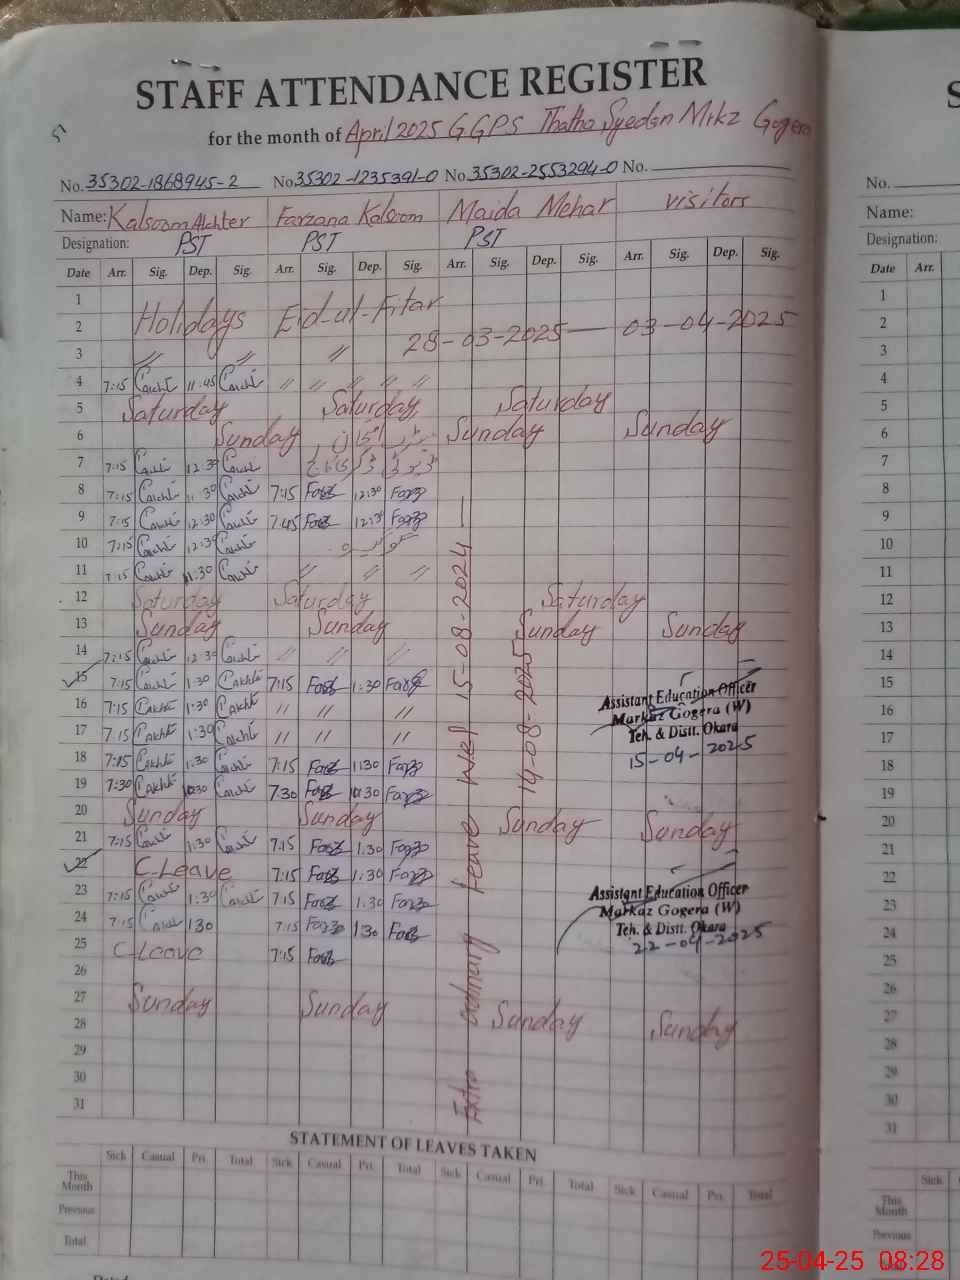 STAFF ATTENDANCE REGISTER
for the month of April 2025 GGPS Thatha Syedan Mrkz Gogera
51
No. 35302-1868945-2 No 35302-1235391-0 No. 35302-2553294-0 No.
Name: Kalsoom Akhter Farzana Kalsoom Maida Mehar visitors
Designation: PST PST PST
Date Arr. Sig. Dep. Sig. Arr. Sig. Dep. Sig. Arr. Sig. Dep. Sig. Arr. Sig. Dep. Sig.
1
2 Holidays Eid-ut-Fitar 28-03-2025 — 03-04-2025
3 〃 〃 〃
4 7:15 11:45 〃 〃 〃 〃 〃
5 Saturday Saturday Saturday
6 Sunday Sunday Sunday
7 7:15 12:30 ڈیوٹی
8 7:15 11:30 7:15 Farz 12:30 Farz
9 7:15 12:30 7:45 Farz 12:30 Farz
10 7:15 12:30
11 7:15 11:30 〃 〃 〃
12 Saturday Saturday Saturday
13 Sunday Sunday Sunday Sunday
14 7:15 12:30 〃 〃 〃
15 7:15 1:30 CAkhte 7:15 Farz 1:30 Farz
16 7:15 CAkhte 1:30 CAkhte 〃 〃 〃
17 7:15 CAkhte 1:30 〃 〃 〃
18 7:15 CAkhte 1:30 7:15 Farz 1:30 Farz
19 7:30 CAkhte 10:30 7:30 Farz 10:30 Farz
20 Sunday Sunday Sunday Sunday
21 7:15 1:30 7:15 Farz 1:30 Farz
22 C.Leave 7:15 Farz 1:30 Farz
23 7:15 1:30 7:15 Farz 1:30 Farz
24 7:15 1:30 7:15 Farz 1:30 Farz
25 C-Leave 7:15 Farz
26
27 Sunday Sunday Sunday Sunday
28
29
30
31
Extra ordinary Leave w.e.f 15-08-2024 —
14-08-2025
Assistant Education Officer
Markaz Gogera (W)
Teh. & Distt. Okara
15-04-2025
Assistant Education Officer
Markaz Gogera (W)
Teh. & Distt. Okara
22-04-2025
STATEMENT OF LEAVES TAKEN
Sick Casual Pri. Total Sick Casual Pri. Total Sick Casual Pri. Total Sick Casual Pri. Total
This Month
Previous
Total
S
No.
Name:
Designation:
Date Arr.
1
2
3
4
5
6
7
8
9
10
11
12
13
14
15
16
17
18
19
20
21
22
23
24
25
26
27
28
29
30
31
Sick
This Month
Previous
25-04-25 08:28